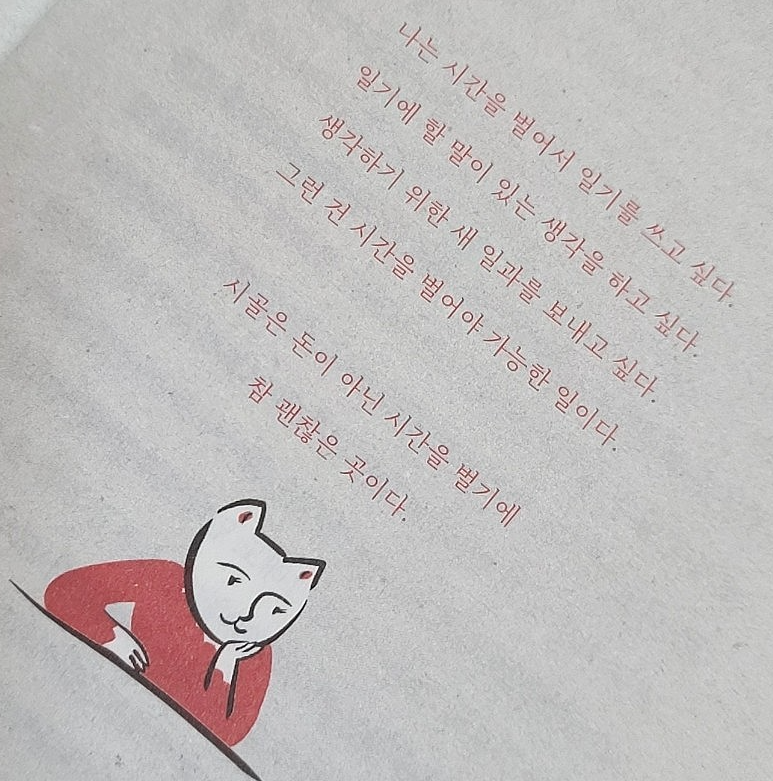 나는 시간을 벌어서 일기를 쓰고 싶다.
일기에 할 말이 있는 생각을 하고 싶다.
생각하기 위한 새 일과를 보내고 싶다.
그런 건 시간을 벌어야 가능한 일이다.
시골은 돈이 아닌 시간을 벌기에
참 괜찮은 곳이다.